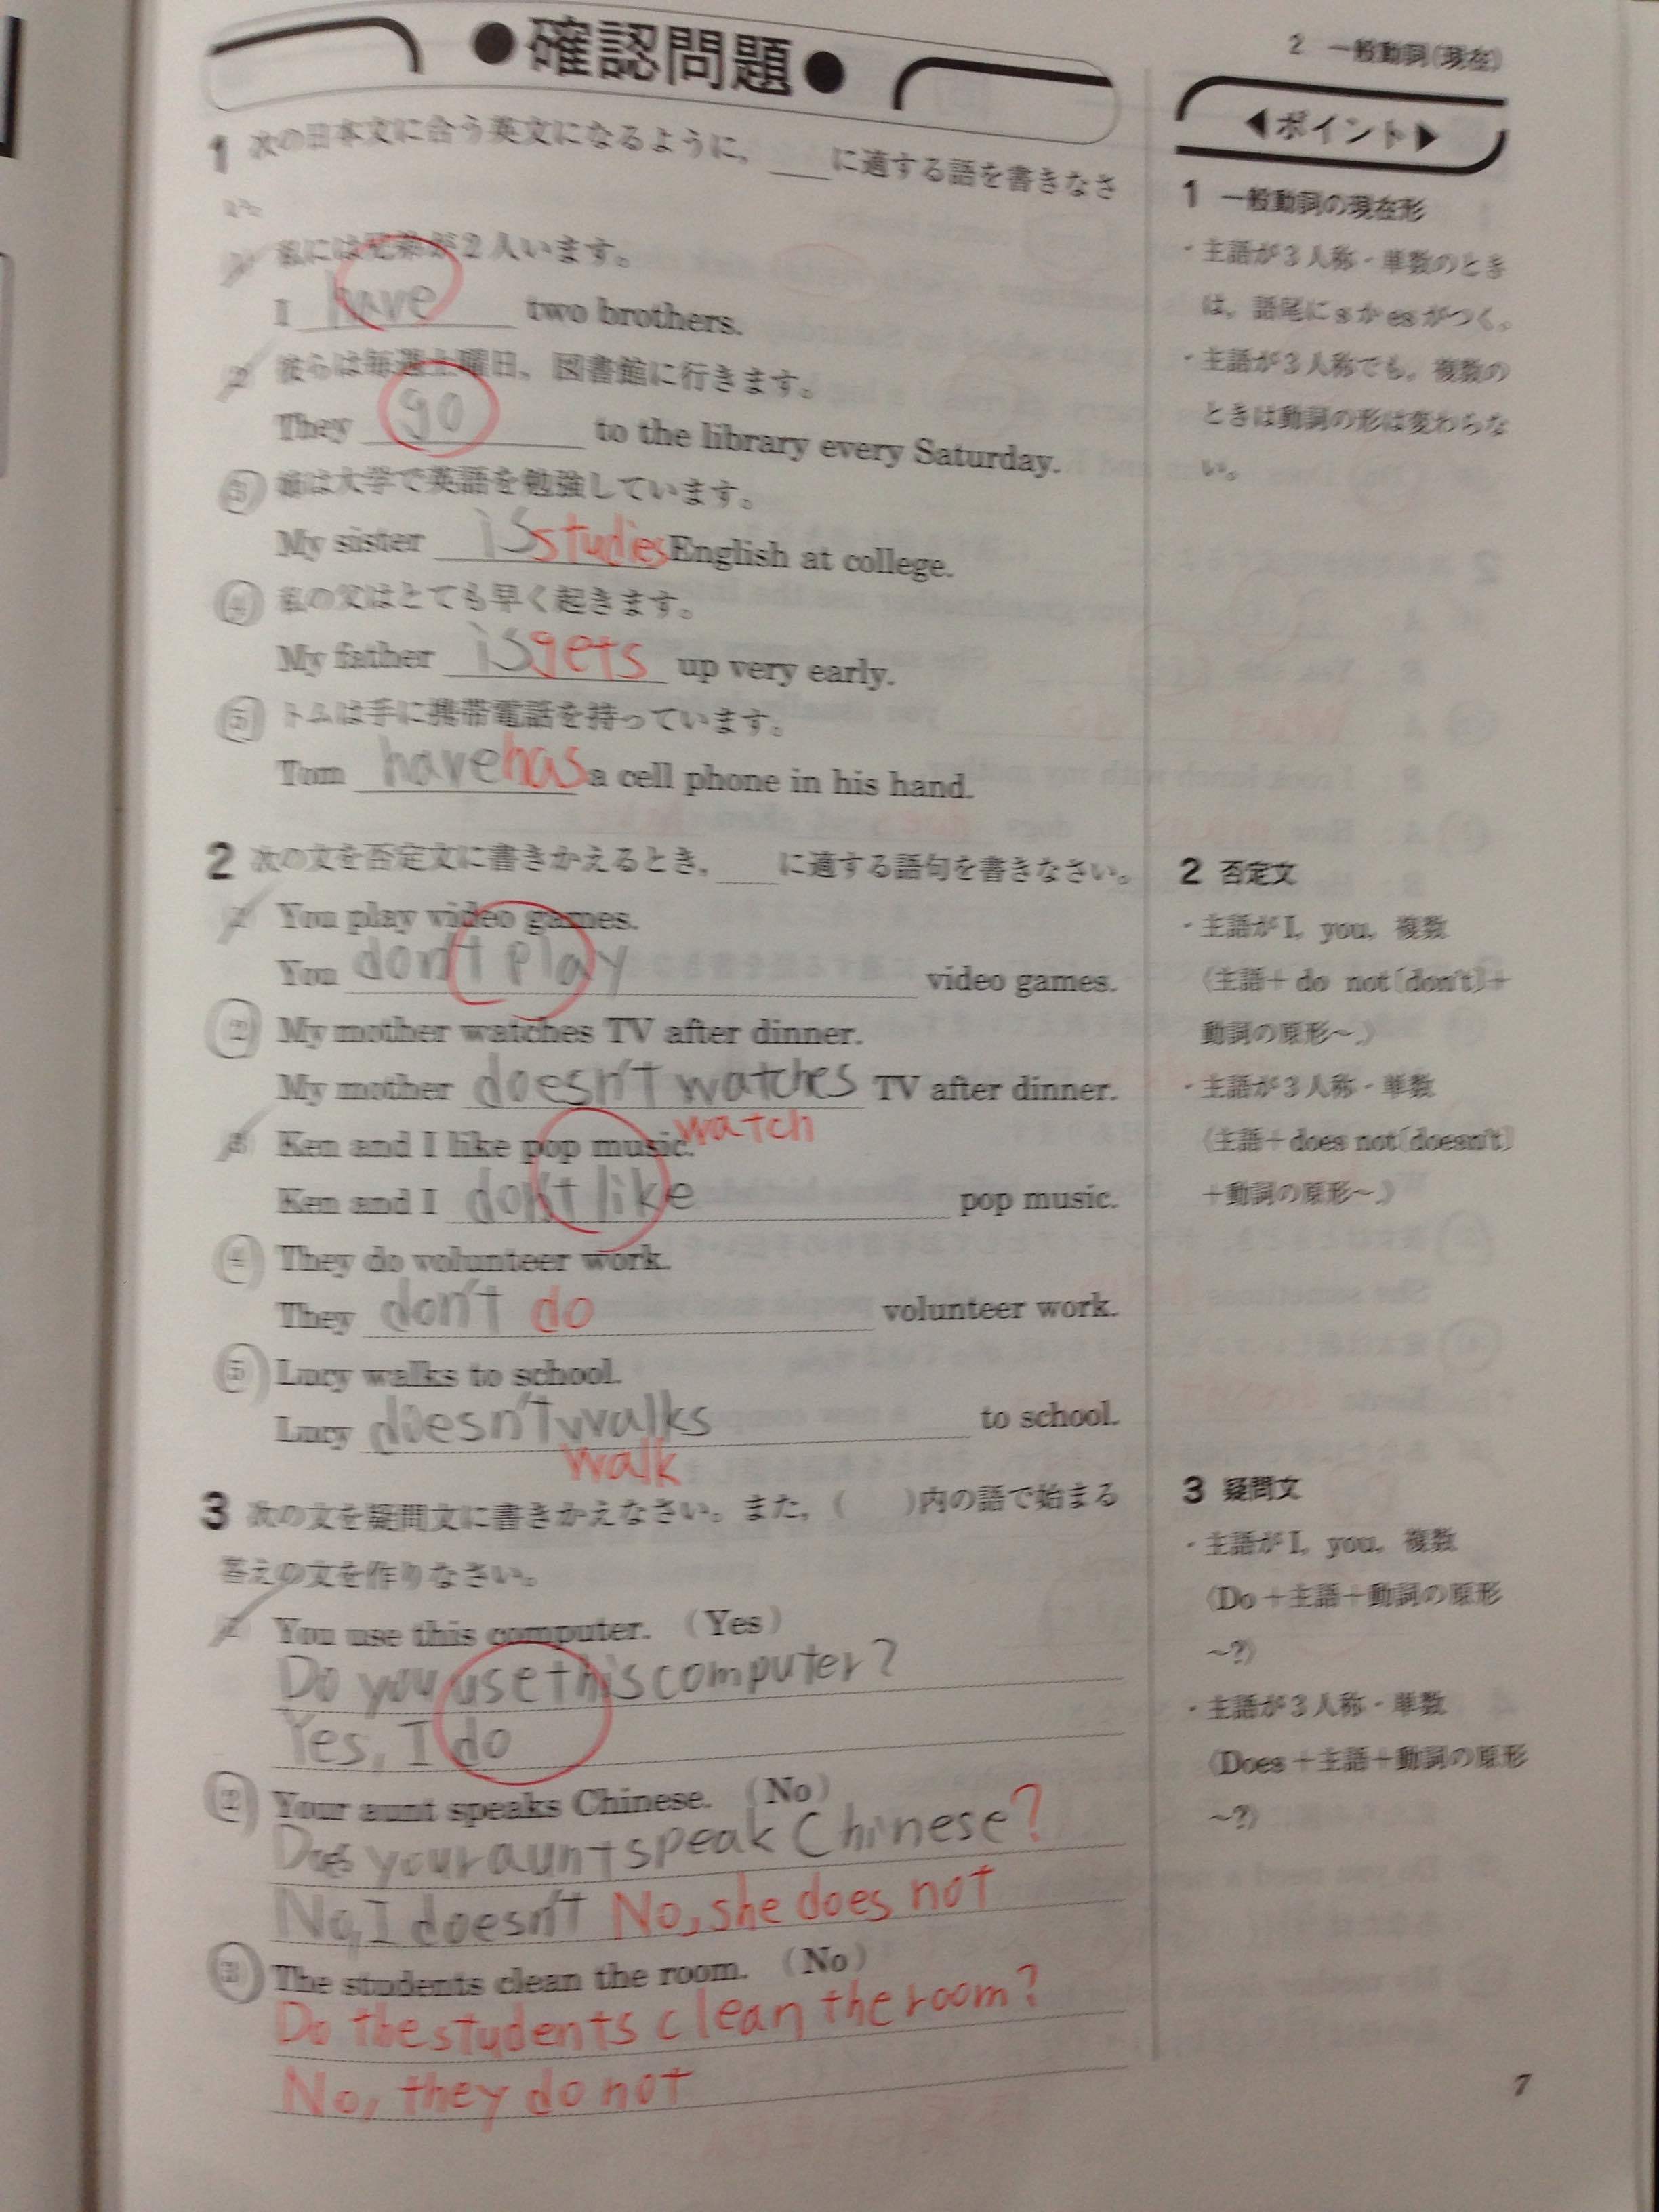 ●確認問題●
1 次の日本文に合う英文になるように，＿＿に適する語を書きなさ
い。
私には兄弟が2人います。
I have two brothers.
2 彼らは毎週土曜日，図書館に行きます。
They go to the library every Saturday.
3 姉は大学で英語を勉強しています。
My sister is studies English at college.
4 私の父はとても早く起きます。
My father is gets up very early.
5 トムは手に携帯電話を持っています。
Tom have has a cell phone in his hand.
2 次の文を否定文に書きかえるとき，＿＿に適する語句を書きなさい。
1 You play video games.
You don't play video games.
2 My mother watches TV after dinner.
My mother doesn't watches TV after dinner.
watch
3 Ken and I like pop music.
Ken and I don't like pop music.
4 They do volunteer work.
They don't do volunteer work.
5 Lucy walks to school.
Lucy doesn't walks to school.
walk
3 次の文を疑問文に書きかえなさい。また，（　）内の語で始まる
答えの文を作りなさい。
1 You use this computer. （Yes）
Do you use this computer?
Yes, I do
2 Your aunt speaks Chinese. （No）
Does your aunt speak Chinese?
No, I doesn't No, she does not
3 The students clean the room. （No）
Do the students clean the room?
No, they do not
2 一般動詞（現在）
◀ポイント▶
1 一般動詞の現在形
・主語が3人称・単数のとき
は，語尾にsかesがつく。
・主語が3人称でも，複数の
ときは動詞の形は変わらな
い。
2 否定文
・主語がI，you，複数
〈主語＋do not〔don't〕＋
動詞の原形～.〉
・主語が3人称・単数
〈主語＋does not〔doesn't〕
＋動詞の原形～.〉
3 疑問文
・主語がI，you，複数
〈Do＋主語＋動詞の原形
～?〉
・主語が3人称・単数
〈Does＋主語＋動詞の原形
～?〉
7